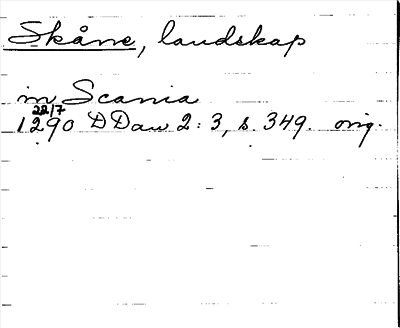 Skåne, landskap
in Scania
22/7
1290 DDan 2:3, s. 349. orig.